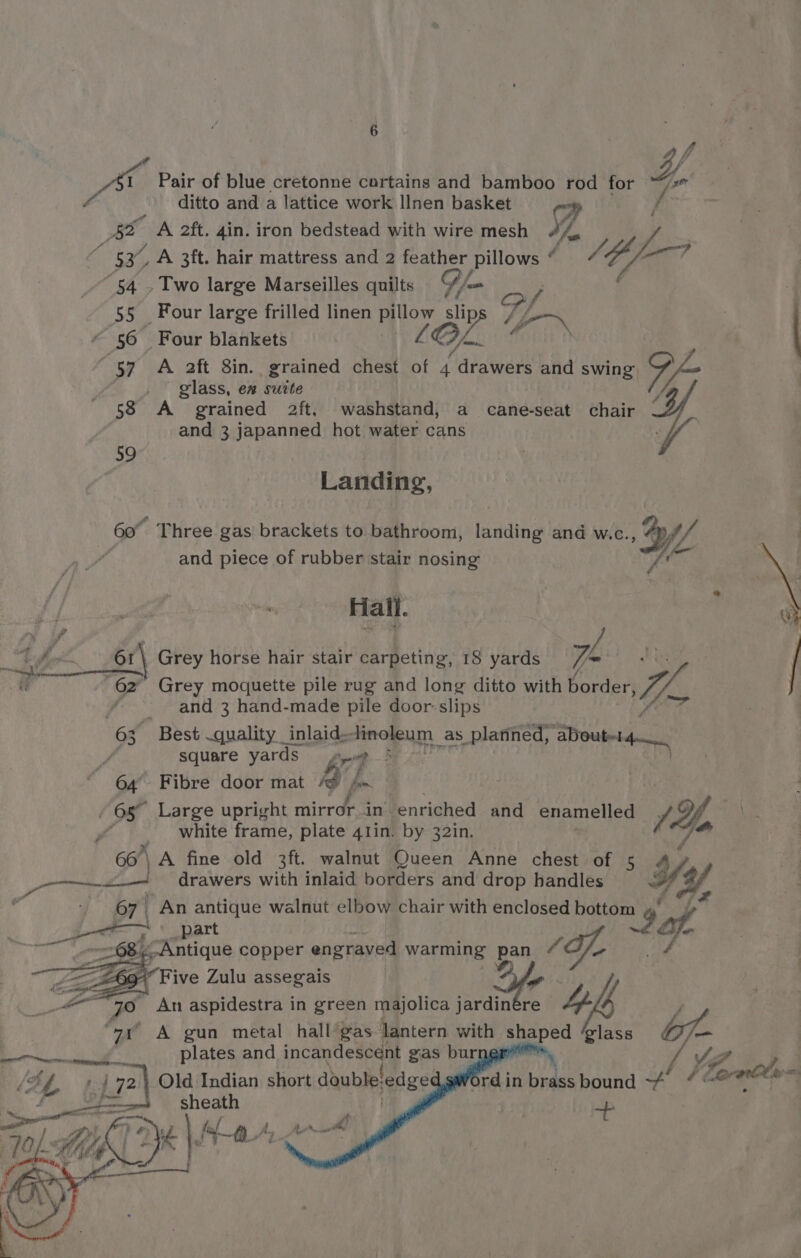 6
51 Pair of blue cretonne curtains and bamboo rod for
ditto and a lattice work linen basket
52 A 2ft. 4in. iron bedstead with wire mesh
53 A 3ft. hair mattress and 2 feather pillows
54 Two large Marseilles quilts
55 Four large frilled linen pillow slips
56 Four blankets
57 A 2ft 8in. grained chest of 4 drawers and swing
glass, en suite
58 A grained 2ft. washstand, a cane-seat chair
and 3 japanned hot water cans
59
Landing,
60 Three gas brackets to bathroom, landing and w.c.,
and piece of rubber stair nosing
Hall.
61 Grey horse hair stair carpeting, 18 yards
62 Grey moquette pile rug and long ditto with border,
and 3 hand-made pile door slips
63 Best quality inlaid linoleum as planned, about 14
square yards
64 Fibre door mat
65 Large upright mirror in enriched and enamelled
white frame, plate 41in. by 32in.
66 A fine old 3ft. walnut Queen Anne chest of 5
drawers with inlaid borders and drop handles
67 An antique walnut elbow chair with enclosed bottom
part
68 Antique copper engraved warming pan
69 Five Zulu assegais
70 An aspidestra in green majolica jardinére
71 A gun metal hall gas lantern with shaped glass
plates and incandescent gas burner
72 Old Indian short double edged sword in brass bound
sheath